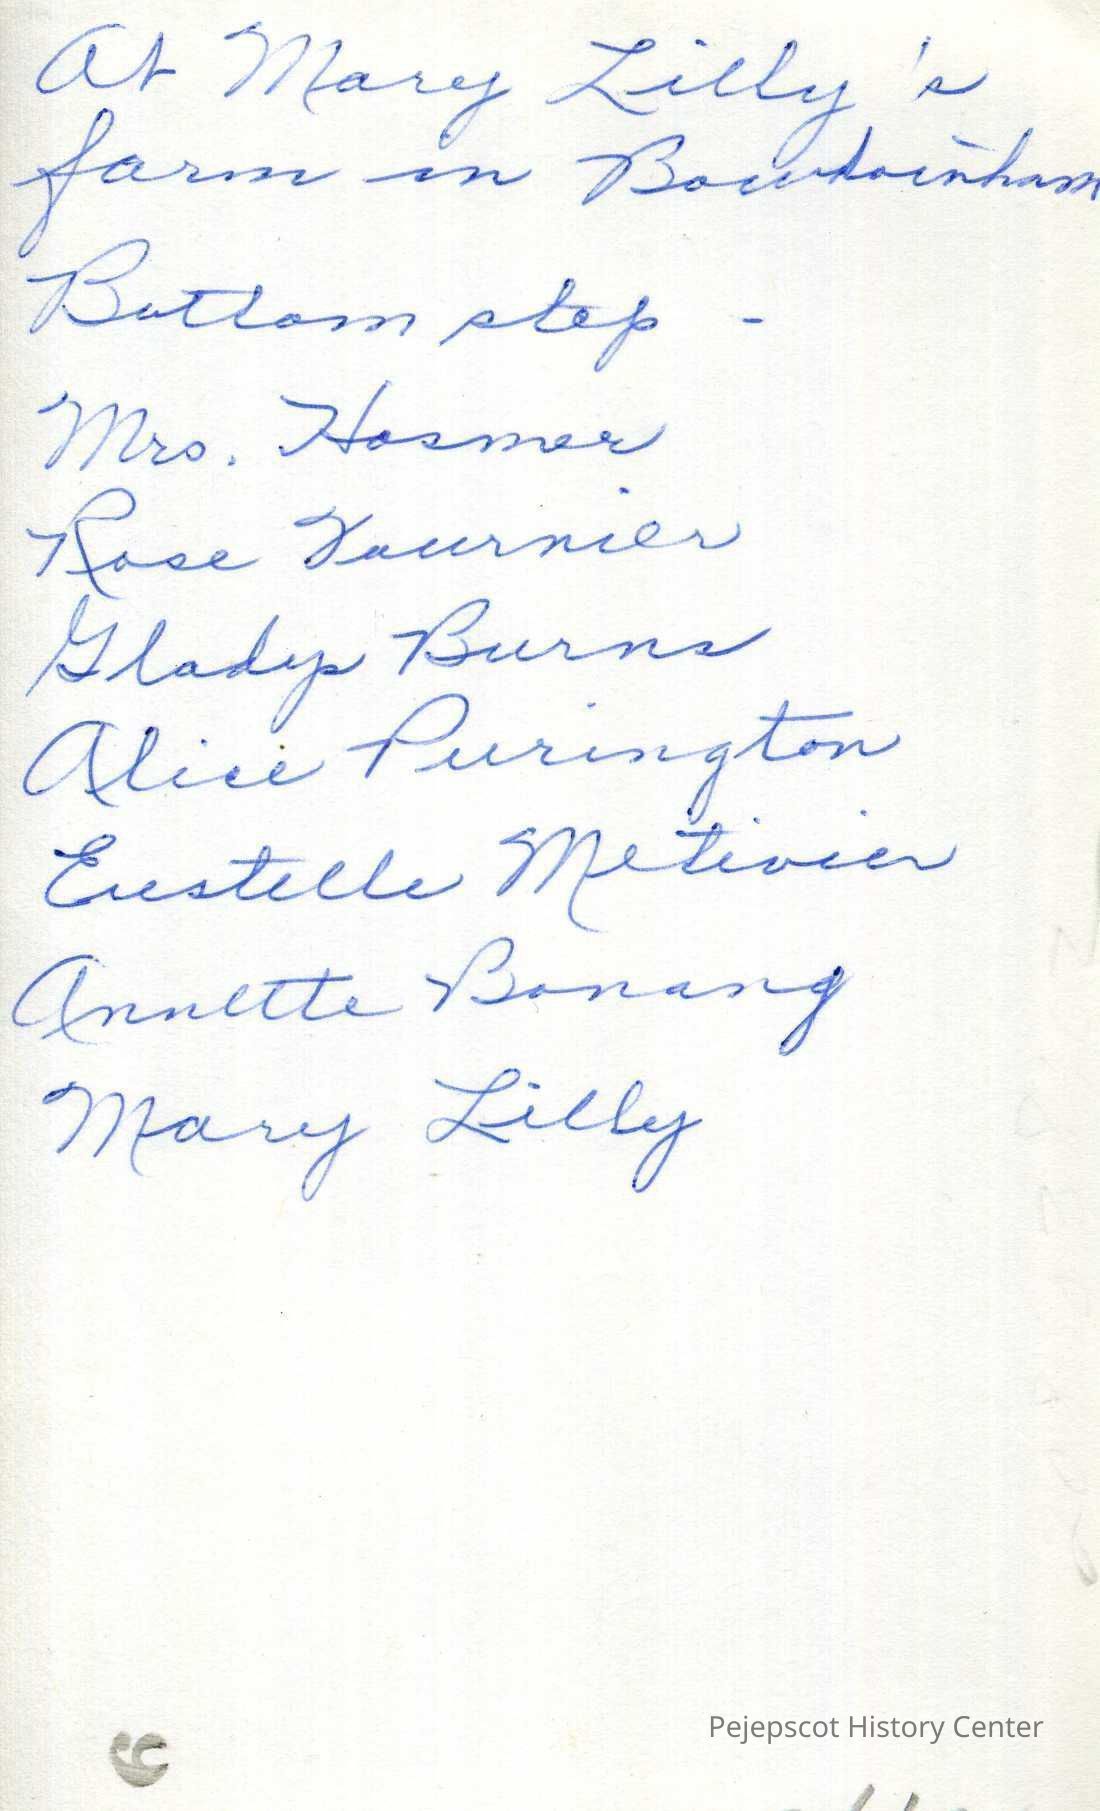 At Mary Lilly's
farm in Bowdoinham
Bottom step -
Mrs. Hosmer
Rose Fournier
Gladys Burns
Alice Purington
Eustelle Metivier
Annette Bonang
Mary Lilly
Pejepscot History Center